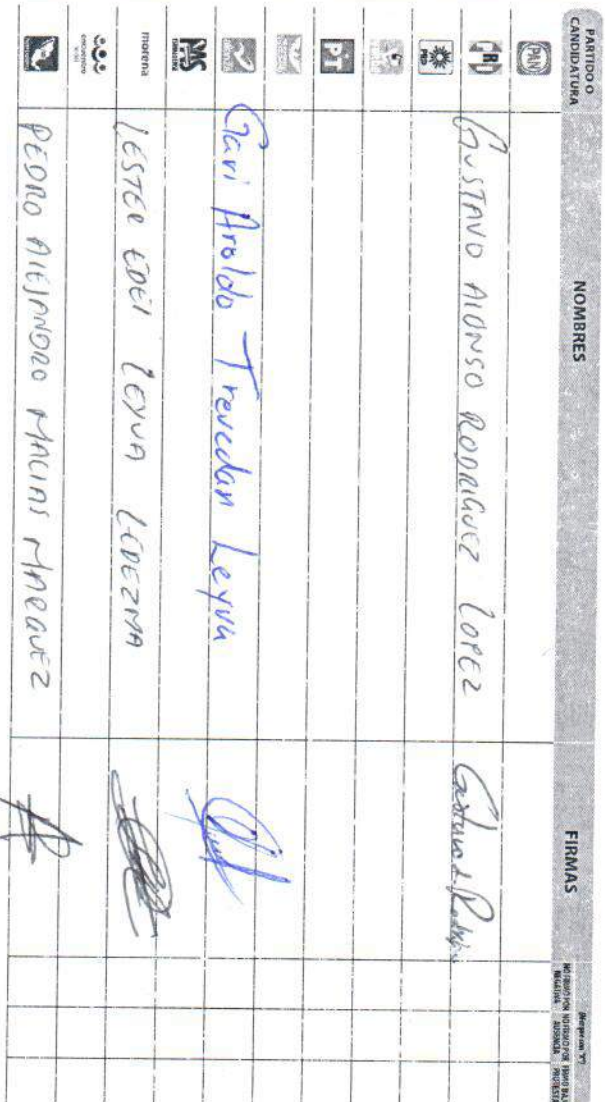 PARTIDO O
CANDIDATURA
NOMBRES
FIRMAS
(Marque con "X")
NO FIRMÓ POR
NEGATIVA
NO FIRMÓ POR
AUSENCIA
FIRMÓ BAJO
PROTESTA
PAN
PRI
GUSTAVO ALONSO RODRIGUEZ LOPEZ
PRD
PT
Gavi Aroldo Trevedan Leyva
PAS
morena
LESTER EDEL LEYVA LEDEZMA
encuentro
PEDRO ALEJANDRO MACIAS MARQUEZ